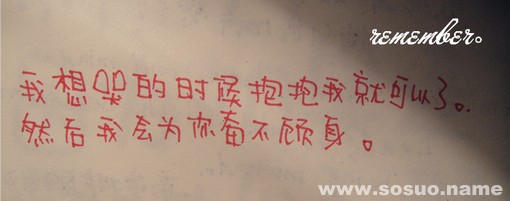 remember。
我想哭的时候抱抱我就可以了。
然后我会为你奋不顾身。
www.sosuo.name